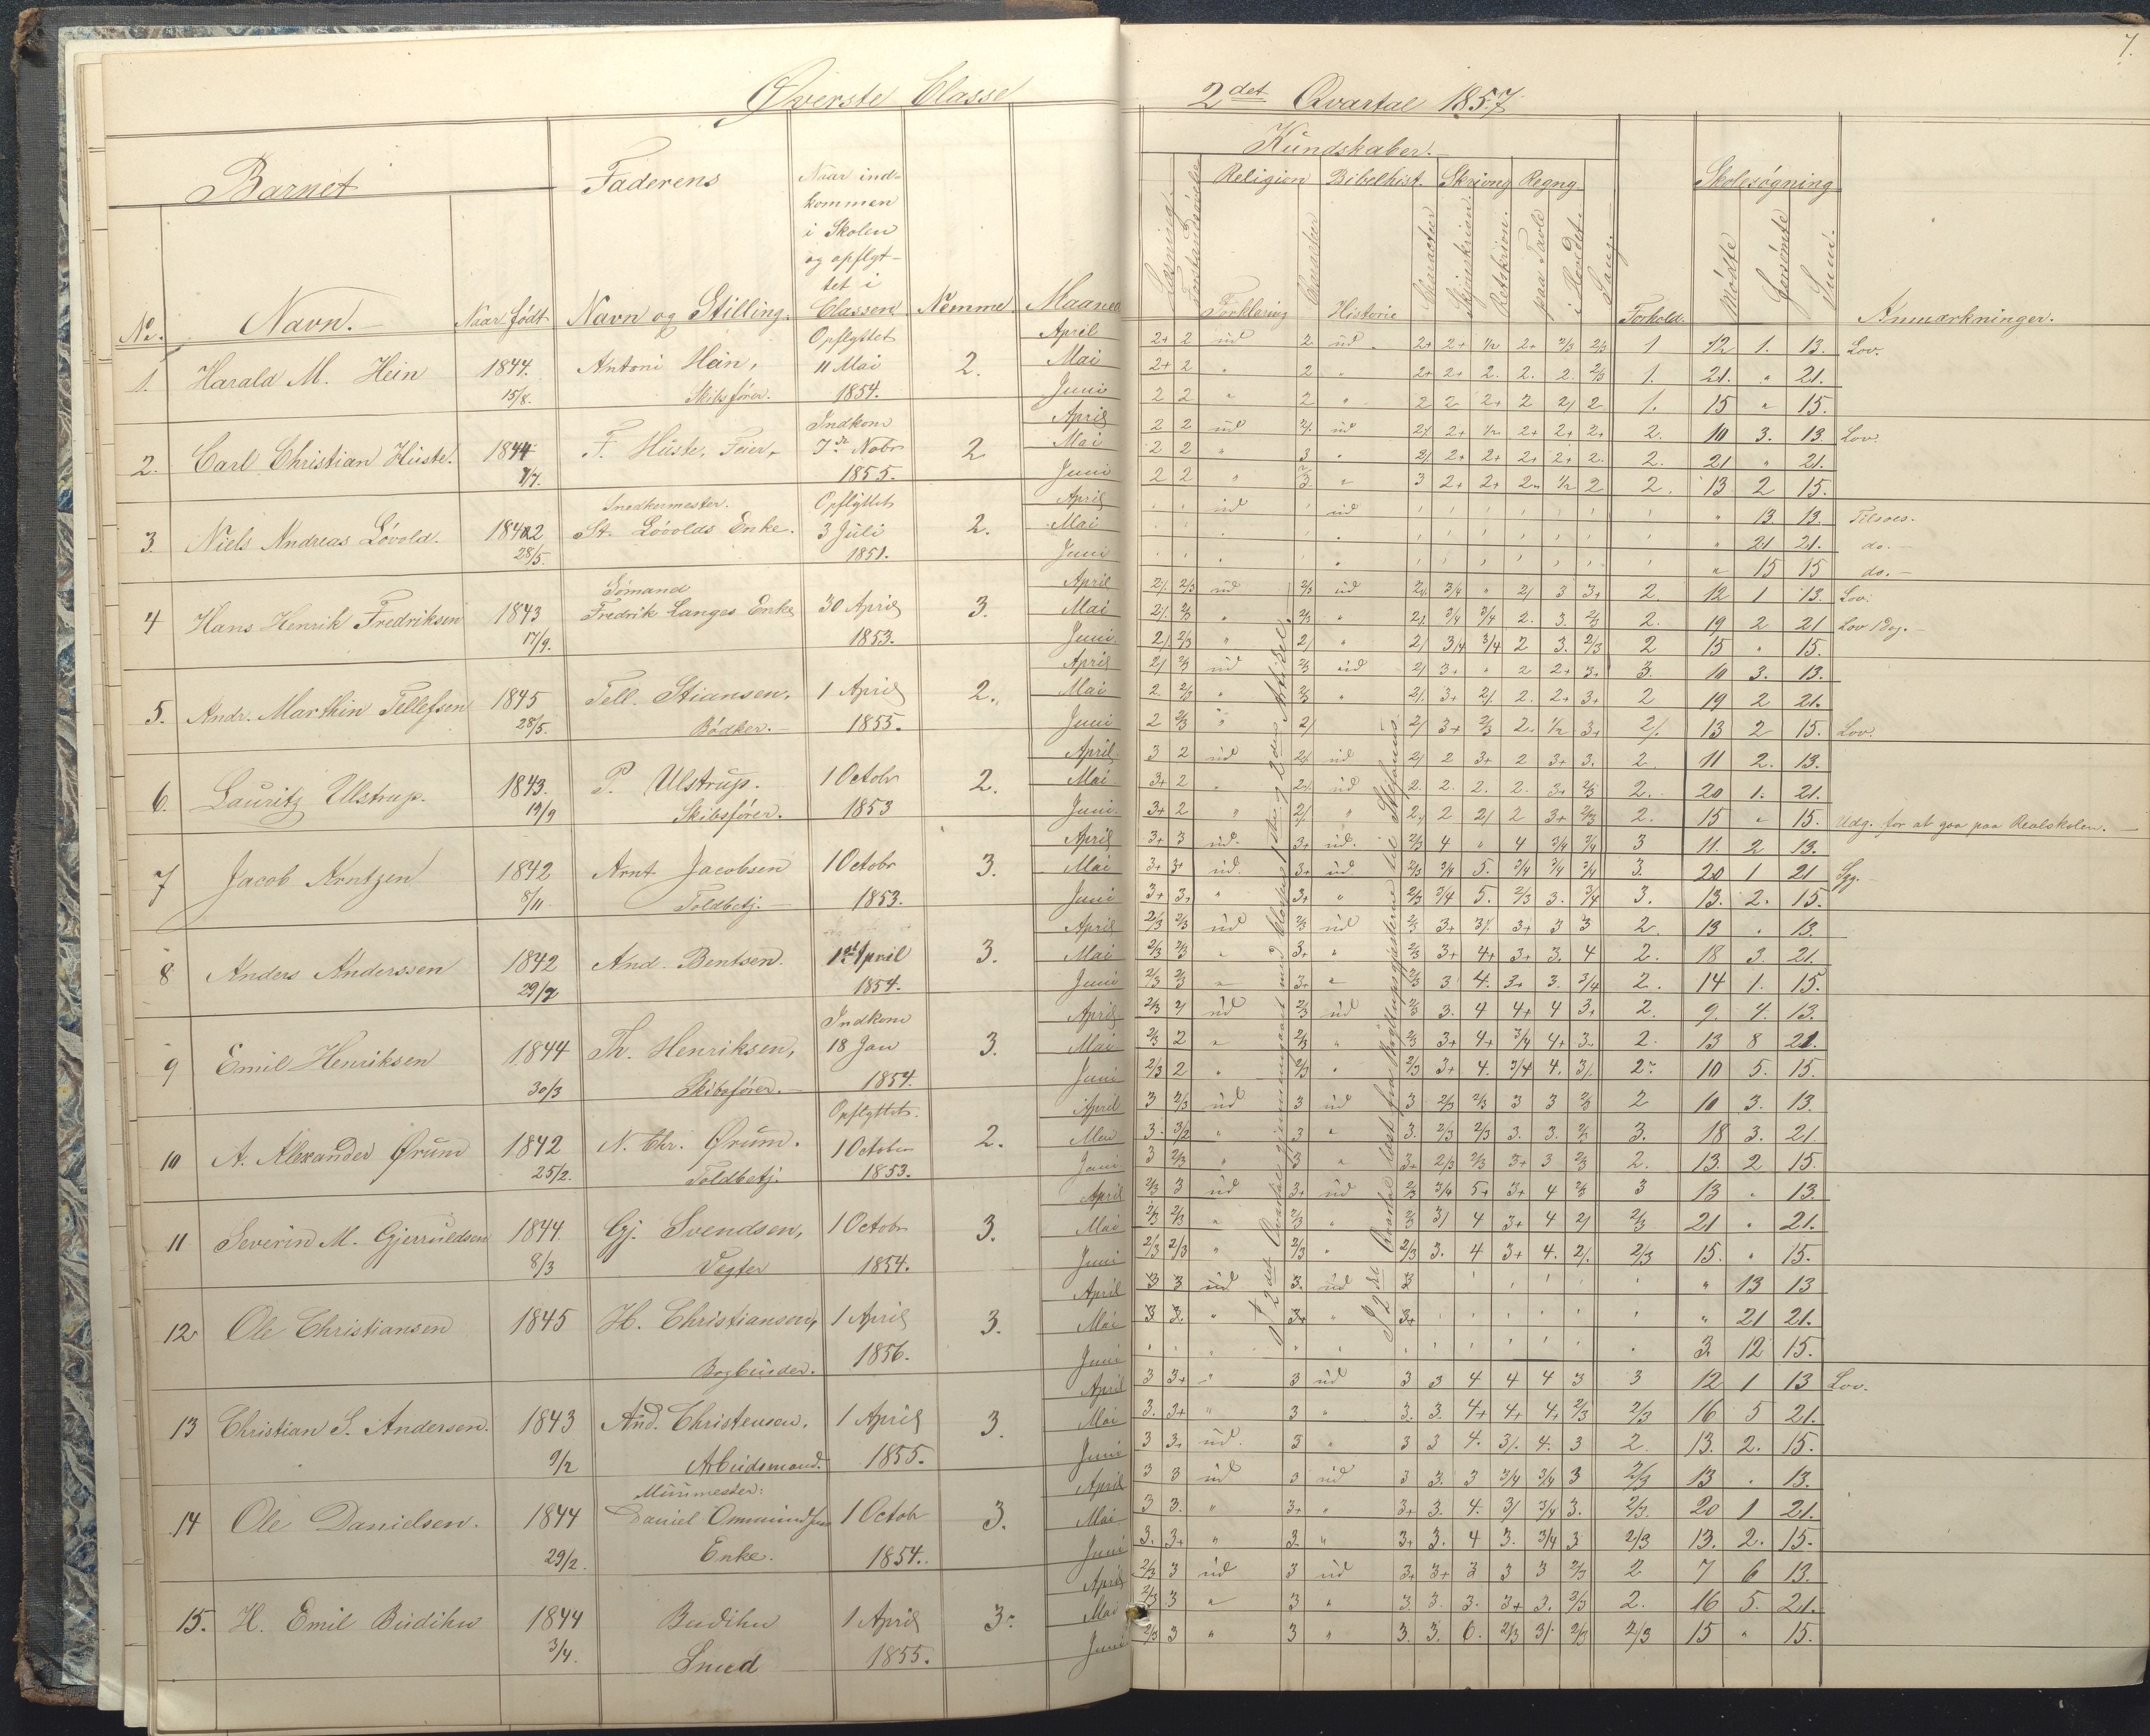 7.
Øverste Classe
2det Qvartal 1857.
Barnet
Faderens
Naar ind-
kommen
i Skolen
og opflyt-
tet i
Classen
Kundskaber.
Religion Bibelhist. Skrivng Regng
Skolesøgning
No. Navn. Naar født Navn og Stilling. Nemme Maaned
Læsning Forklaring Character Historie Character Retskrivn. paa Tavle i Hovedet. Sang. Forhold. Mødte Forsømte Sum. Anmærkninger.
Opflyttet April 2+ 2 ud 2. ud 2+ 2+ 1/2 2+ 2/3 2/3 1 12 1. 13. Lov.
1. Harald M. Hein 1844. Antoni Hein, 11 Mai 2. Mai 2+ 2 " 2 " 2+ 2+ 2. 2. 2. 2/3 1. 21. " 21.
15/8. Skibsfører. 1854. Juni 2 2 " 2 " 2 2 2+ 2 2/ 2 1. 15 " 15.
Indkom April 2 2 ud 2/. ud 2/. 2+ 1/2 2+ 2+ 2+ 2. 10 3. 13. Lov.
2. Carl Christian Huste. 1844 F. Huste, Feier, 7de Nobr 2 Mai 2 2 " 3 " 2/ 2+ 2+ 2+ 2+ 2. 2. 21 " 21.
1/7. 1855. Juni 2 2 " 3 " 3 2+ 2+ 2 1/2 2 2. 13 2 15.
Snedkermester. Opflyttet April ud ud " 13 13. Tilsoes.
3. Niels Andreas Løvold. 1842 St. Løvolds Enke. 3 Juli 2. Mai " 21 21. do.
28/5. 1851. Juni " 15 15 do.
Sømand April 2/. 2/3 ud 2/3 ud 2/. 3/4 " 2/ 3 3+ 2 12 1 13. Lov.
4 Hans Henrik Fredriksen 1843 Fredrik Langes Enke 30 April 3. Mai 2/. 2/3 " 2/3 " 2/. 3/4 3/4 2. 3. 2/3 2. 19 2 21 Lov 1 Dag.
17/9. 1853. Juni 2/ 2/3 " 2/ " 2/ 3/4 3/4 2 3. 2/3 2 15 " 15.
April 2/ 2/3 ud 2/3 ud 2/ 3+ " 2 2+ 3+ 3. 10 3. 13.
5. Andr. Marthin Tellefsen 1845 Tell. Stiansen, 1 April 2. Mai 2. 2/3 " 2/3 " 2/. 3+ 2/. 2. 2+ 3+ 2 19 2 21.
28/5. Bødker. 1855. Juni 2 2/3 " 2/ 2/ 3+ 2/3 2. 1/2 3+ 2/. 13 2 15. Lov.
April 3 2 ud 2/. ud 2/ 2 3+ 2 3+ 3. 2. 11 2. 13.
6. Lauritz Ulstrup. 1843. P. Ulstrup. 1 Octobr 2. Mai 3+ 2 " 2/. ud 2. 2. 2. 2. 3+ 2/3 2. 20 1. 21.
19/9 Skibsfører. 1853 Juni 3+ 2 " 2/. " 2. 2 2/ 2 3+ 2/3 2. 15 " 15. Udg. for at gaa paa Realskolen.
April 3+ 3 ud. 3+ ud. 2/3 4 " 4 3/4 3/4 3 11. 2 13.
7 Jacob Arntzen 1842 Arnt Jacobsen 1 Octobr 3. Mai 3+ 3+ ud. 3+ ud. 2/3 3/4 5. 3/4 3/4 3/4 3. 20 1 21 Syg.
8/11. Toldbetj. 1853. Juni 3+ 3+ " 3+ " 2/3 3/4 5. 2/3 3. 3/4 3. 13. 2. 15.
April 2/3 2/3 ud 2/3 ud 2/3 3+ 3/. 3+ 3 3 2. 13 " 13.
8 Anders Anderssen 1842 And. Bentsen. 1st April 3. Mai 2/3 2/3 " 3+ " 2/3 3+ 4+ 3+ 3. 4 2. 18 3. 21.
29/7 1854. Juni 2/3 2/3 " 3+ " 2/3 3 4. 3+ 3. 3/4 2. 14 1. 15.
Indkom April 2/3 2/ ud 2/3 ud 2/3 3. 4 4+ 4 3+ 2. 9. 4. 13.
9 Emil Henriksen 1844 Th. Henriksen, 18 Jan 3. Mai 2/3 2 " 2/3 " 2/3 3+ 4+ 3/4 4+ 3. 2. 13 8 21.
30/3 Skibsfører. 1854. Juni 2/3 2 " 2/3 " 2/3 3+ 4. 3/4 4. 3/. 2. 10 5. 15.
Opflyttet. April 3 2/3 ud 3 ud 3 2/3 2/3 3 3 2/3 2 10 3. 13.
10 A. Alexander Ørum 1842 N. Chr. Ørum. 1 October 2. Mai 3. 3/2 " 3 " 3. 2/3 2/3 3. 3. 2/3 3. 18 3. 21.
25/2. Toldbetj. 1853. Juni 3 2/3 " 3 " 3+ 2/3 2/3 3+ 3 2/3 2. 13. 2 15.
April 2/3 3 ud 3+ ud 2/3 3/4 5+ 3+ 4 2/3 3 13 " 13.
11 Severin M. Gjeruldsen 1844. Gj. Svendsen, 1 Octobr 3. Mai 2/3 2/3 " 2/3 " 2/3 3/ 4 3+ 4 2/ 2/3 21 " 21.
8/3 Vægter 1854. Juni 2/3 2/3 " 2/3 " 2/3 3. 4 3+ 4. 2/. 2/3 15. " 15.
April 3 3 ud 3. ud 3 " 13 13
12 Ole Christiansen 1845 H. Christiansen, 1 April 3. Mai 3 3. " 3+ " 3+ " 21 21.
Bogbinder. 1856. Juni 3. 12 15.
April 3 3+ " 3 ud 3 3 4 4 4 3 3 12 1 13 Lov.
13 Christian S. Andersen. 1843 And. Christensen, 1 April 3. Mai 3. 3+ " 3 " 3. 3. 4+ 4+ 4+ 2/3 2/3 16 5 21.
9/2 Arbeidsmand. 1855. Juni 3 3+ ud. 3 " 3 3 4. 3/. 4. 3 2. 13. 2. 15.
Muurmester: April 3 3 ud 3 ud 3 3. 3 3/4 3/4 3 2/3 13 " 13.
14 Ole Danielsen. 1844 Daniel Ommundsens 1 Octobr 3. Mai 3 3. " 3+ " 3+ 3. 4. 3/ 3/4 3. 2/3. 20 1 21.
29/2. Enke. 1854. Juni 3. 3+ " 3. " 3+ 3. 4 3. 3/4 3 2/3 13. 2. 15.
April 2/3 3 ud 3 ud 3+ 3+ 3 3 3 2/3 2 7 6 13.
15. H. Emil Budihn 1844 Budihn 1 April 3. Mai 2/3 3 " 3 " 3. 3. 3. 3+ 3. 2/3 2. 16 5. 21.
3/4. Smed 1855. Juni 2/3 3 " 3 " 3. 3. 0. 2/3 3/. 2/3 2/3 15 " 15.